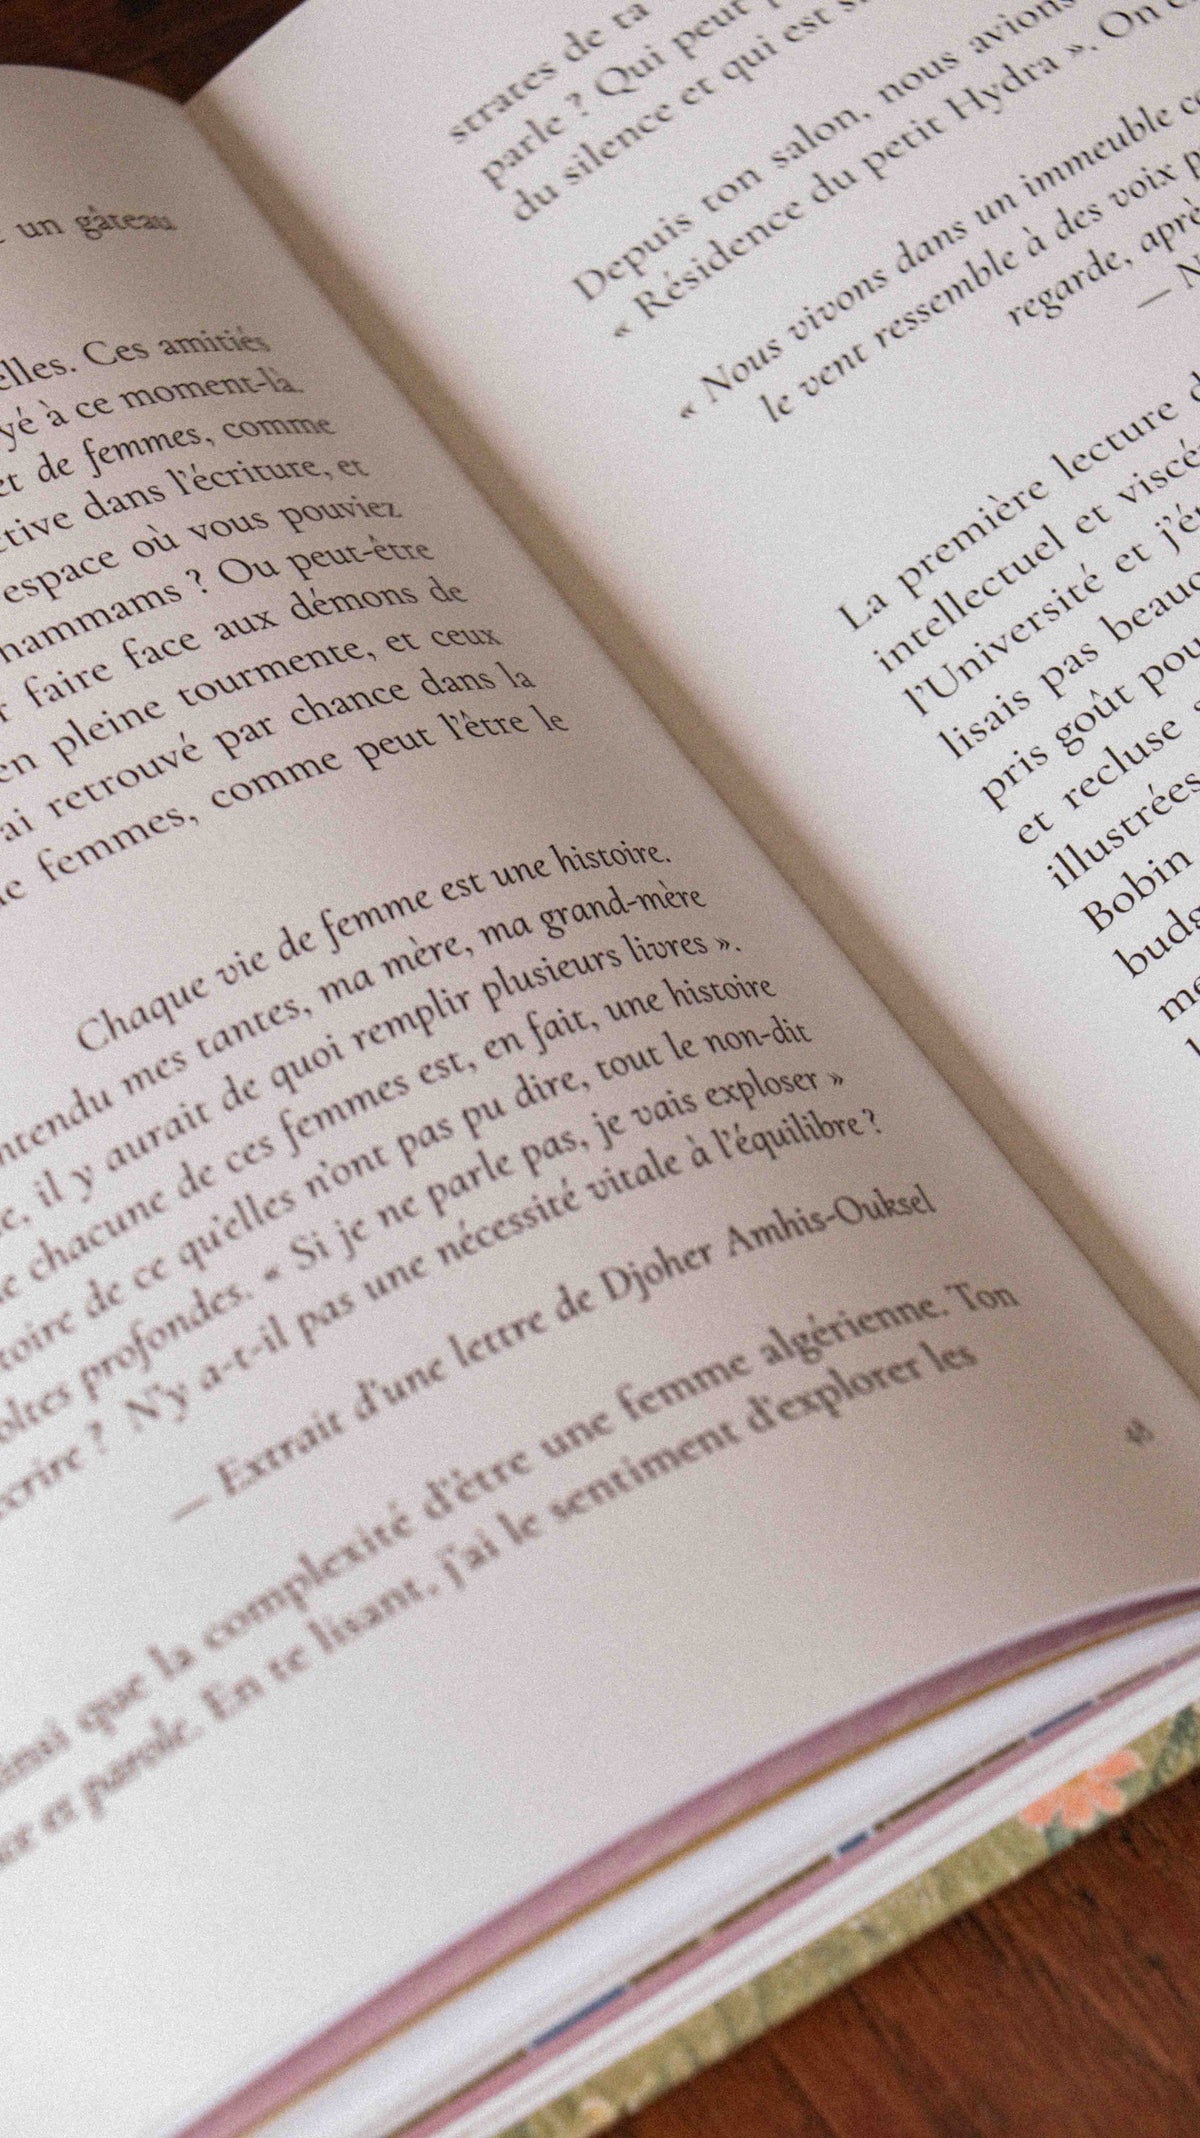 un gâteau
elles. Ces amitiés
yé à ce moment-là.
et de femmes, comme
ctive dans l'écriture, et
espace où vous pouviez
hammams ? Ou peut-être
r faire face aux démons de
en pleine tourmente, et ceux
ai retrouvé par chance dans la
e femmes, comme peut l'être le
Chaque vie de femme est une histoire.
ntendu mes tantes, ma mère, ma grand-mère
e, il y aurait de quoi remplir plusieurs livres ».
e chacune de ces femmes est, en fait, une histoire
toire de ce qu'elles n'ont pas pu dire, tout le non-dit
oltes profondes. « Si je ne parle pas, je vais exploser »
écrire ? N'y a-t-il pas une nécessité vitale à l'équilibre ?
— Extrait d'une lettre de Djoher Amhis-Ouksel
ainsi que la complexité d'être une femme algérienne. Ton
er et parole. En te lisant, j'ai le sentiment d'explorer les
strates de ta
parle ? Qui peut
du silence et qui est
Depuis ton salon, nous avions
« Résidence du petit Hydra ». On
« Nous vivons dans un immeuble
le vent ressemble à des voix
regarde, après
— N
La première lecture d
intellectuel et viscé
l'Université et j'é
lisais pas beauc
pris goût pou
et recluse
illustrées
Bobin
budg
me